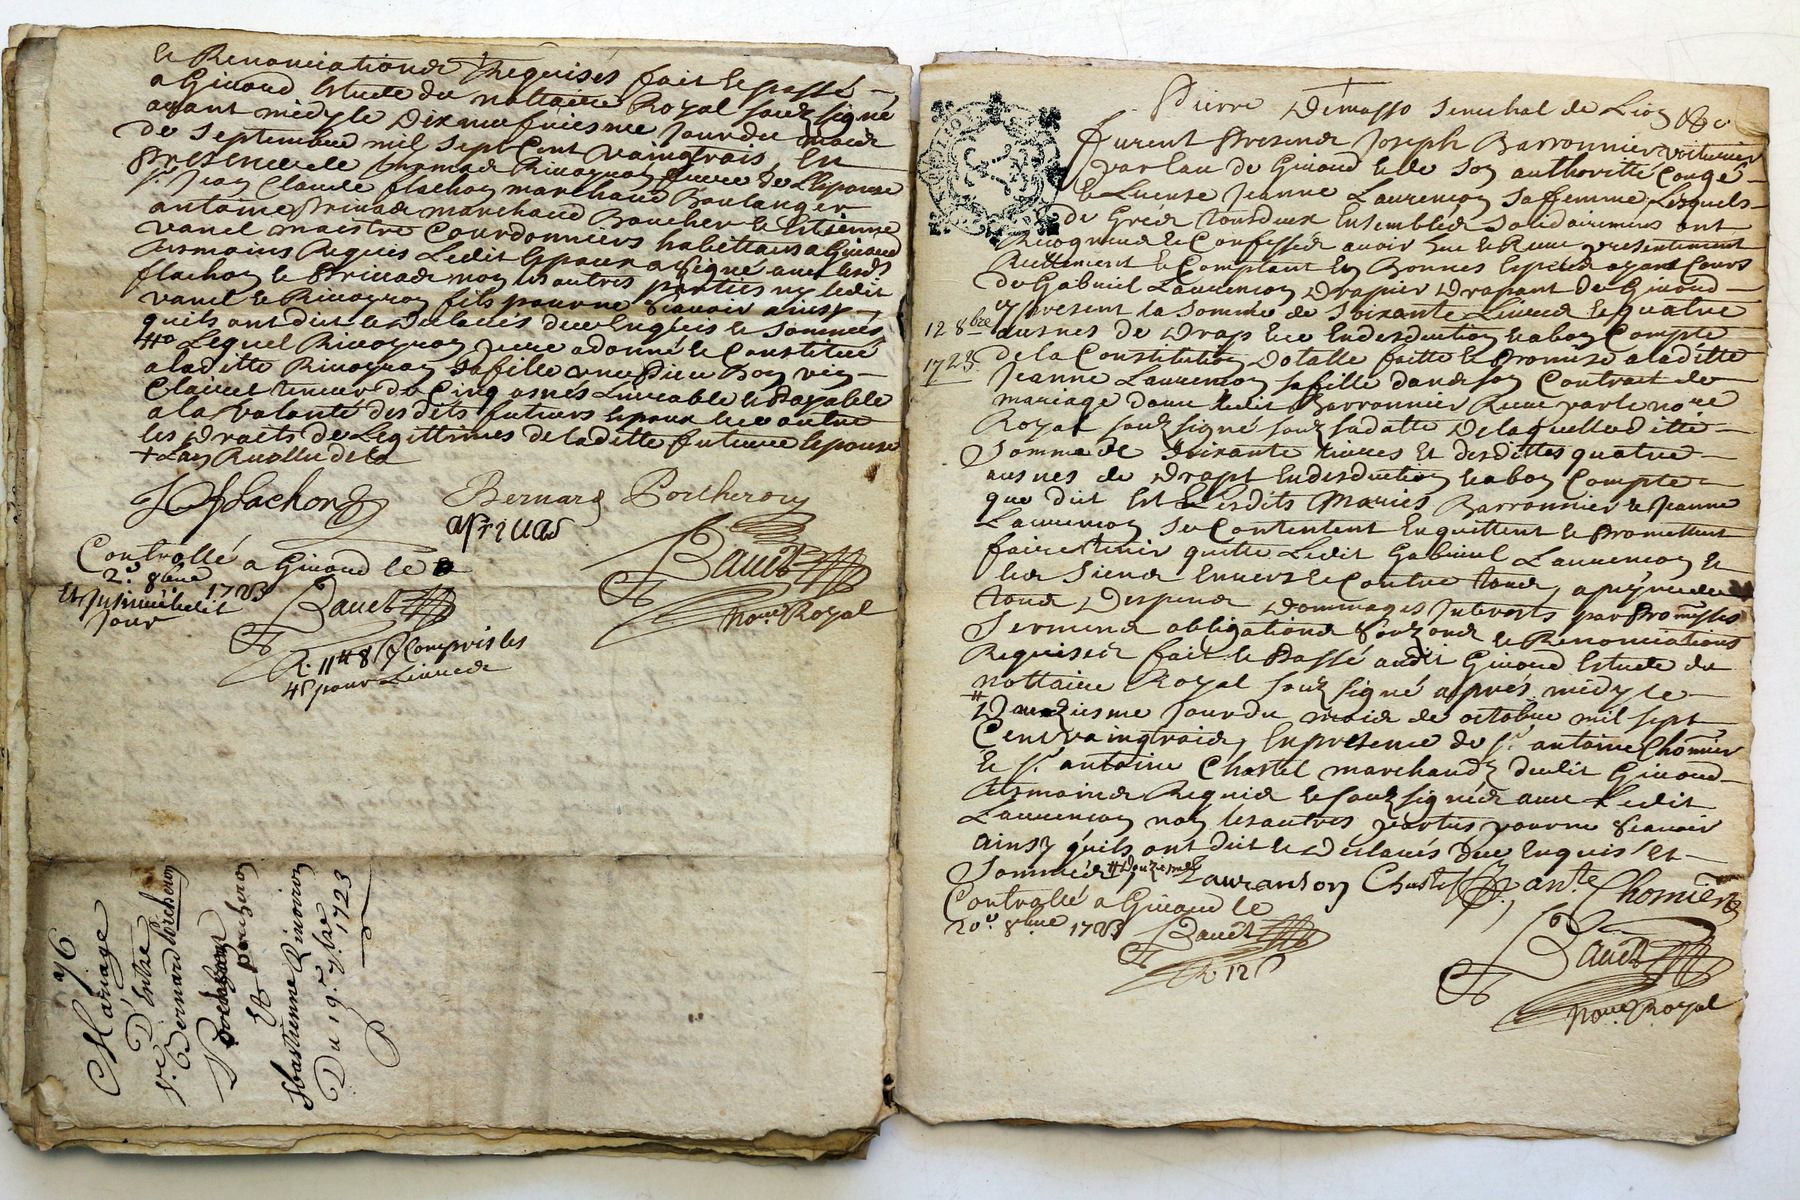 et Renonciationde Requises fait et passé
a Givord Estude du nottaire Royal soubsigné
avant midy le Dix neufviesme Jour du mois
de Septembre mil sept Cent vaingtrois, En
Presence de
Sr Jean Claude flachon marchand Boulanger
antoine Privade marchand Boucher et Estienne
vanel maistre Courdonniers habittans a Givord
tesmoins Requis Ledit Epoux a signé avec lesds
flachon et Privade non les autres parties ny ledit
vanel et fils pour ne scavoir ainsy
quils ont dit et Declarés deue Enquis et Sommés
Lequel a donné et Constitué
a laditte sa fille
de Cinq asnés Livrable et Payable
a la volonté desdits futurs epoux
les Droits de Legittimes de laditte future Epouse
J C flachon Bernard Porcheron
aPrivad
Controllé a Givord le
2e 8bre 1723
Et Insinué ledit
Jour
Bauet
Bauet
nore Royal
R. 11# 8s Compris les
4s pour Livre
76
Mariage
D'Entre
Sr Bernard Porcheron
Et
Sbastienne
Du 19e 7bre 1723
Pierre Demasso Senechal de Lion &c
furent Presend Joseph Barronnier voiturier
par Eau de Givord et de Son authoritté Congé
et License Jeanne Laurencon Sa femme, Lesquels
de Gred tousdeux Ensembled Solidairement ont
Recogneud et Confessed avoir Eue et Receu presentement
Reellement et Comptant En Bonnes Especed ayant Cours
de Gabriel Laurencon Drapier Drapant de Givord
y present la Somme de Soixante Livred et quatre
12 8bre
1723
ausnes de Drap Et ce Endesduction et abon Compte
de la Constitution Dotalle faitte et Promise a laditte
Jeanne Laurencon sa fille dand son Contrait de
mariage avec ledit Barronnier Receu par le nore
Royal soubsigné sous sa datte De laquelle ditte
Somme de Soixante livres Et desdittes quatre
ausnes de Drapt Endesduction et abon Compte
que dit Est Lesdits Mariés Barronnier et Jeanne
Laurencon Se Contentent Enquittent et Promettent
faire tenir quitte Ledit Gabriel Laurencon Et
led Siend Enverd et Contre toud, a peyne de
toud Despend Dommages Interests par Promesses
Sermend obligationd Soubzond et Renonciations
Requises fait et Passé audit Givord Estude du
nottaire Royal soubsigné apres midy le
# Jour du moid de octobre mil sept
Cent vaingtroid, En presence de Sr antoine Chomier
et Sr antoine Chastel marchands dudit Givord
tesmoind Requid et soubsignéd avec Ledit
Laurencon non les autres parties pour ne Scavoir
ainsy quils ont dit et Declarés deue Enquis Et
Sommés # Douzieme Lauranson Chastel ante Chomier
Controllé a Givord le
20e 8bre 1723
Bauet
R 12s
Bauet
nore Royal